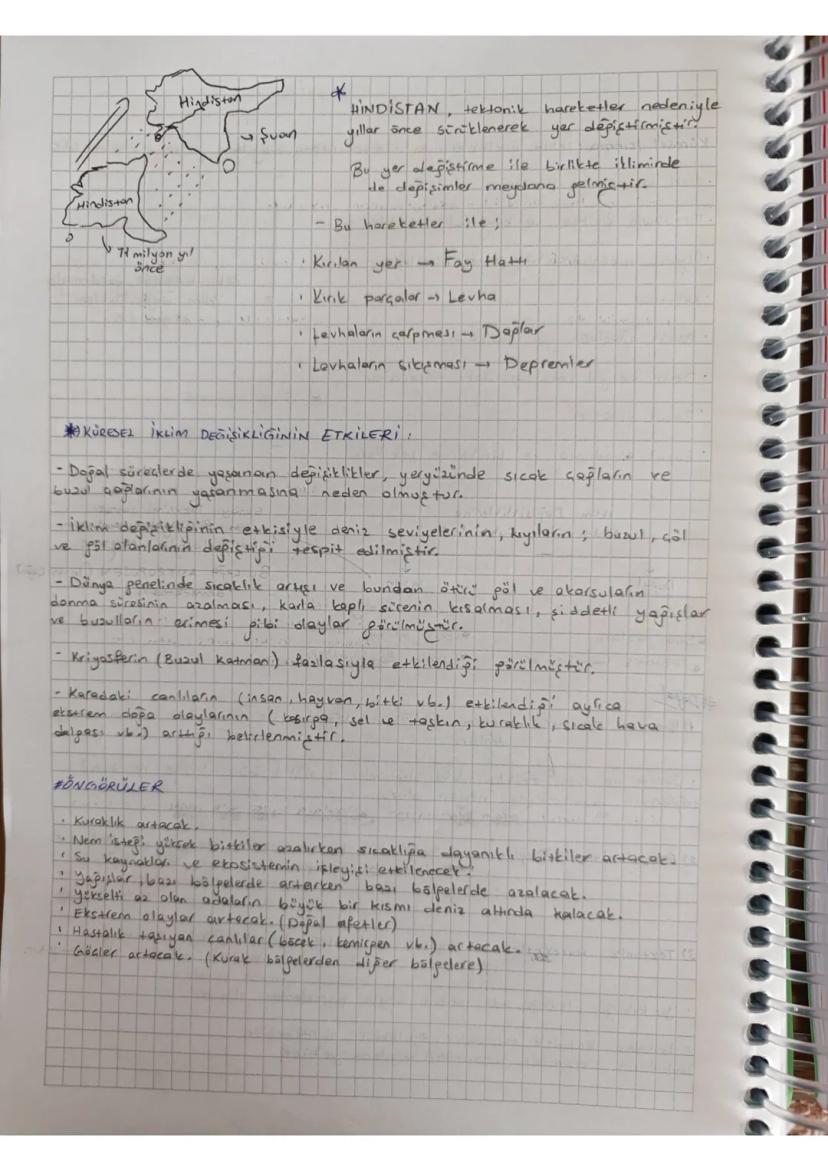 Hindistan
→ Şuan
Hindistan
71 milyon yıl
önce
* HİNDİSTAN, tektonik hareketler nedeniyle
yıllar önce sürüklenerek yer değiştirmiştir.
Bu yer değiştirme ile birlikte ikliminde
de değişimler meydana gelmiştir.
- Bu hareketler ile;
· Kırılan yer → Fay Hattı
· Kırık parçalar → Levha
· Levhaların çarpması → Dağlar
· Levhaların sıkışması → Depremler
* KÜRESEL İKLİM DEĞİŞİKLİĞİNİN ETKİLERİ:
- Doğal süreçlerde yaşanan değişiklikler, yeryüzünde sıcak çağların ve
buzul çağlarının yaşanmasına neden olmuştur.
- İklim değişikliğinin etkisiyle deniz seviyelerinin, kıyıların; buzul, çöl
ve göl alanlarının değiştiği tespit edilmiştir.
- Dünya genelinde sıcaklık artışı ve bundan ötürü göl ve akarsuların
donma süresinin azalması, karla kaplı sürenin kısalması, şiddetli yağışlar
ve buzulların erimesi gibi olaylar görülmüştür.
- Kriyosferin (Buzul Katman) fazlasıyla etkilendiği görülmüştür.
- Karadaki canlıların (insan, hayvan, bitki vb.) etkilendiği ayrıca
ekstrem doğa olaylarının (kasırga, sel ve taşkın, kuraklık, sıcak hava
dalgası vb.) arttığı belirlenmiştir.
#ÖNGÖRÜLER
· Kuraklık artacak.
· Nem isteği yüksek bitkiler azalırken sıcaklığa dayanıklı bitkiler artacak.
· Su kaynakları ve ekosistemin işleyişi etkilenecek.
· Yağışlar, bazı bölgelerde artarken bazı bölgelerde azalacak.
· Yükselti az olan adaların büyük bir kısmı deniz altında kalacak.
· Ekstrem olaylar artacak. (Doğal afetler)
· Hastalık taşıyan canlılar (böcek, kemirgen vb.) artacak.
· Göçler artacak. (Kurak bölgelerden diğer bölgelere)